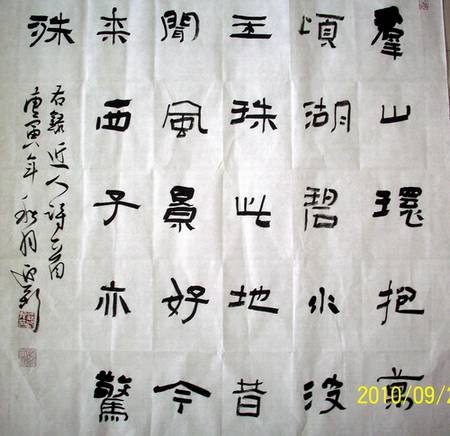 羣山環抱萬
頃湖碧水没
玉珠此地昔
聞風景好今
来西子亦驚
殊
右録近人詩一首
庚寅八年
2010/09/2